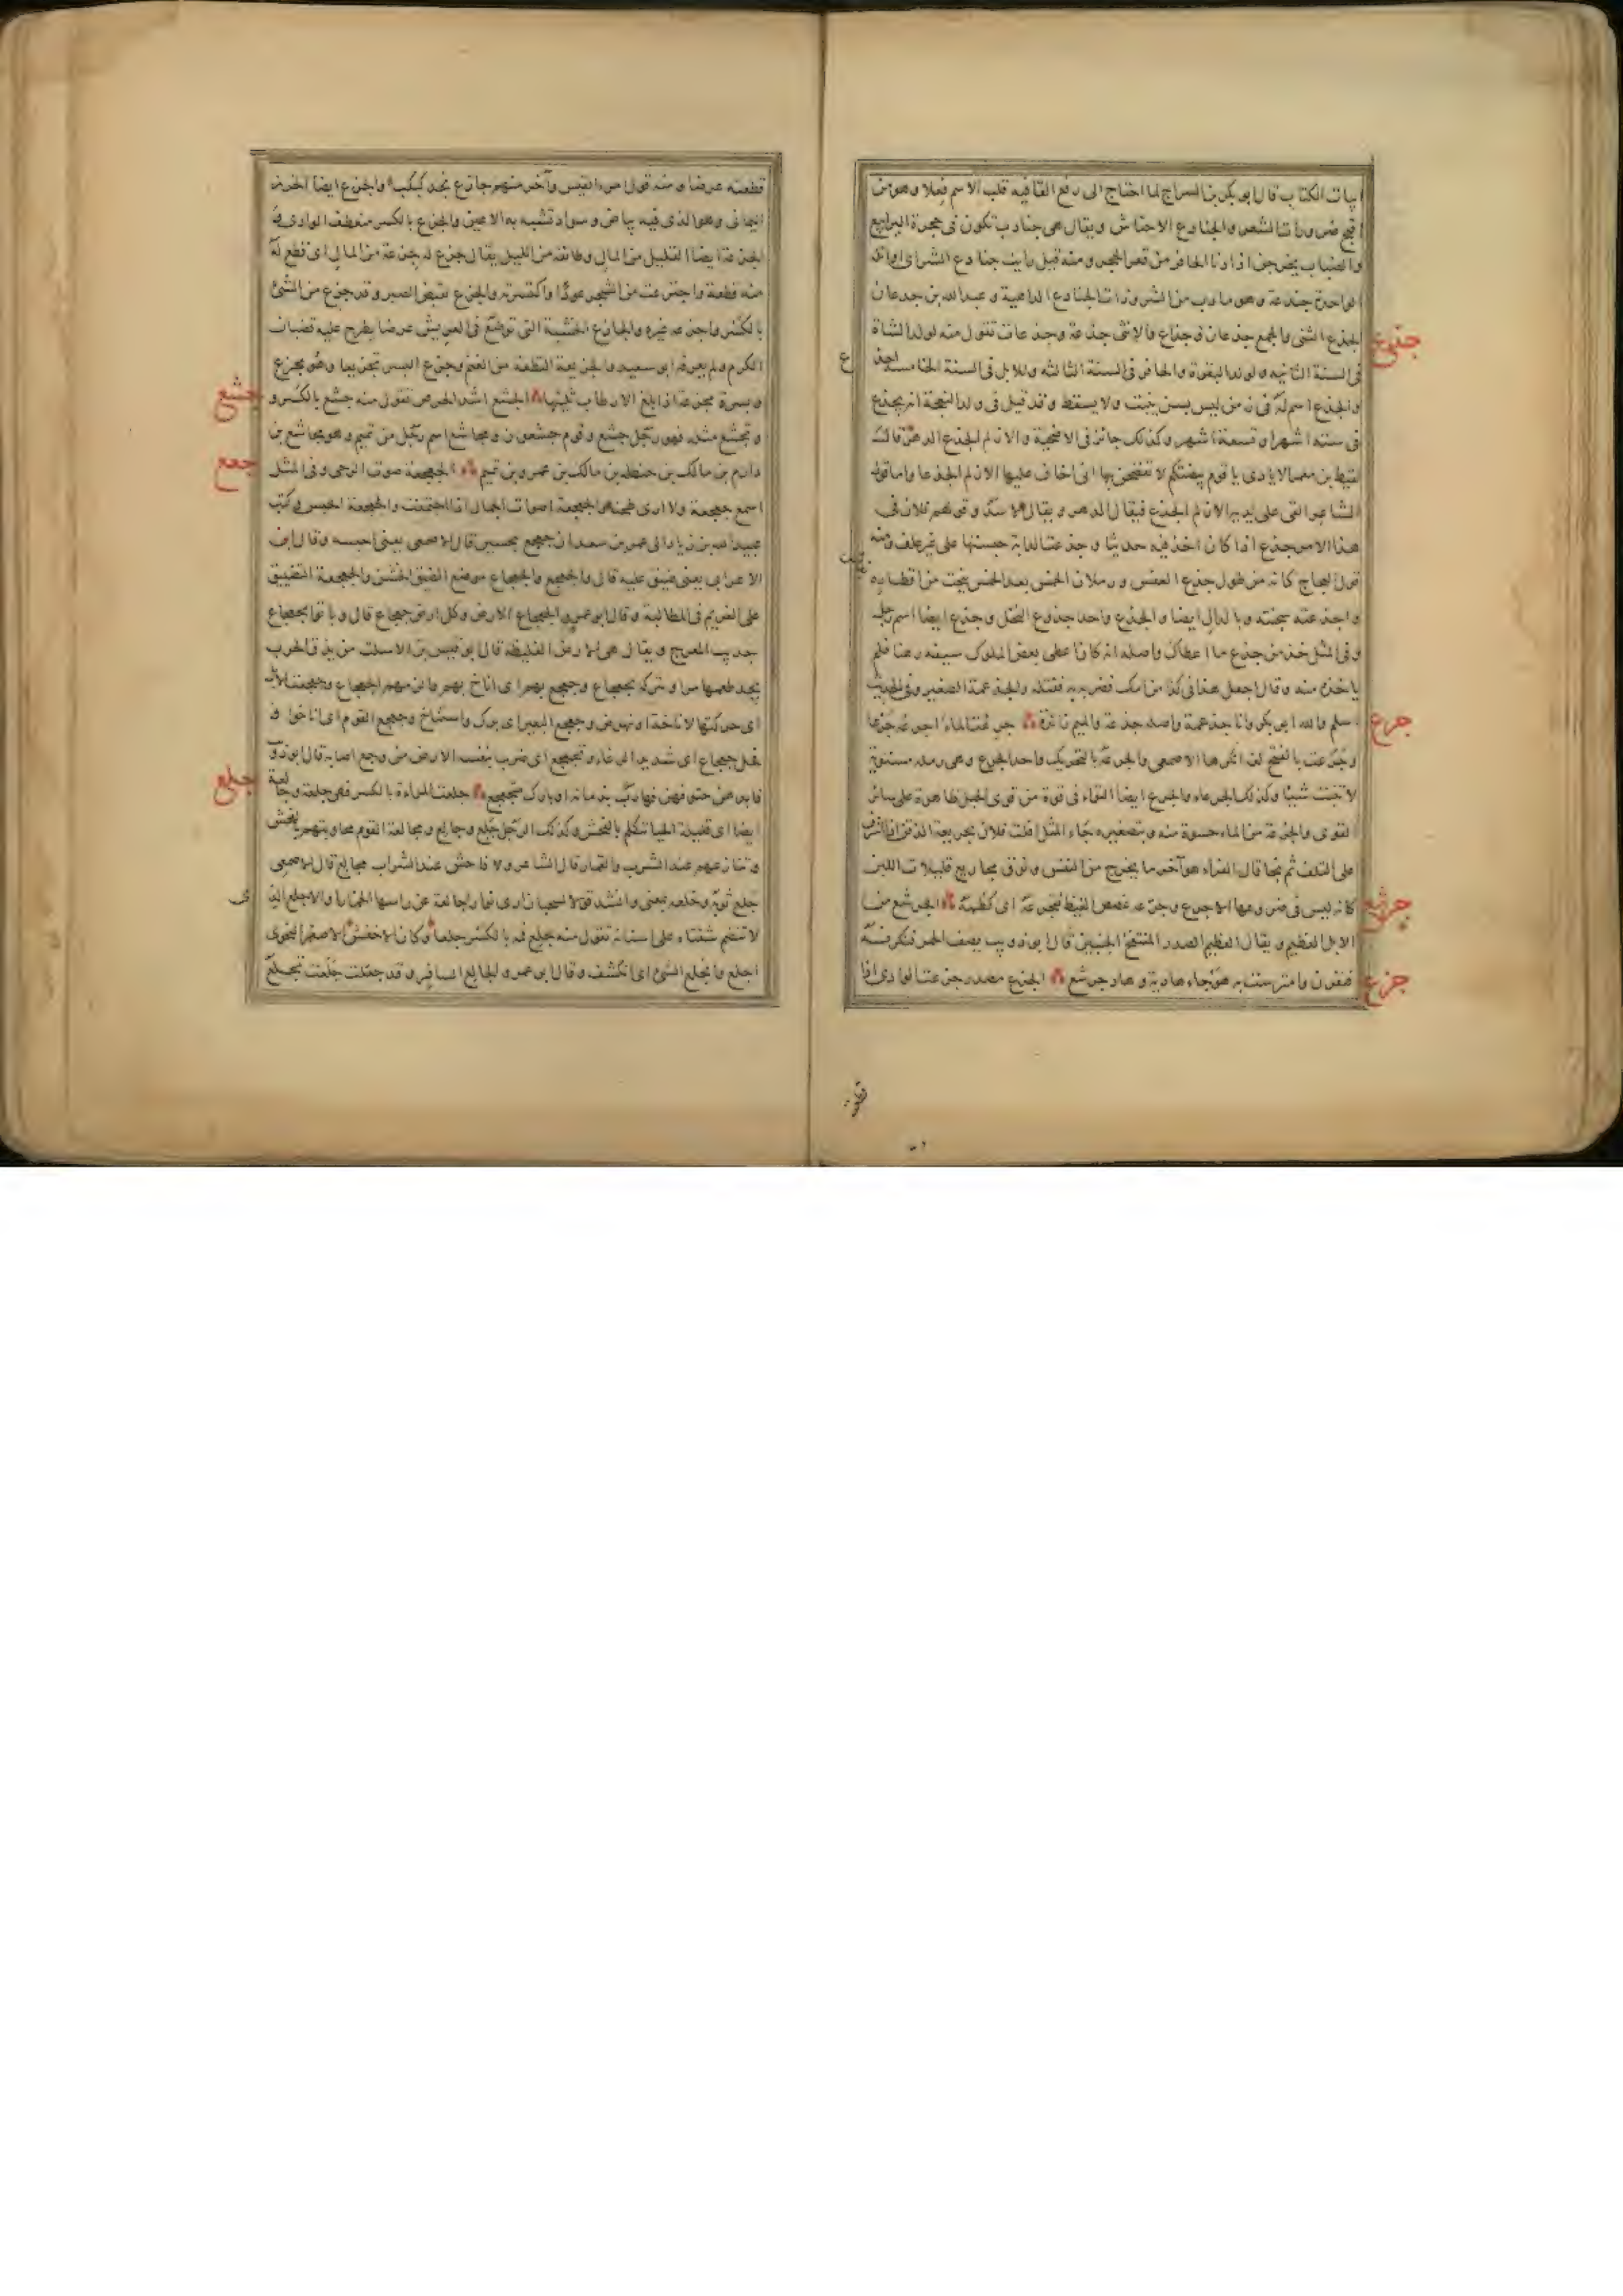 ابيات الكتاب قال ابو بكر بن السراج لما احتاج الى رفع القافيه قلب الاسم فعلا وهو من
اقبح ضرورات الشعر والجنادع الاحناش ويقال هى جنادب تكون فى جحرة اليرابيع
والضباب يخرجن اذا دنا الحافر من قعر الجحر ومنه قيل رايت جنادع الشر اى اوائله
الواحدة جندعة وهو ما دب من الشر وذات الجنادع الداهية وعبد الله بن جدعان
جذع
الجذع الثنى والجمع جذعان وجذاع والانثى جذعة وجذعات تقول منه لولد الشاة
فى السنة الثانيه ولولد البقرة والحافر فى السنة الثالثه وللابل فى السنة الخامسه اجذع
والجذع اسم له فى زمن ليس بسن ينبت ولا يسقط وقد قيل فى ولد النعجة انه يجذع
فى ستة اشهر او تسعة اشهر وكذلك جائز فى الاضحية والازلم الجذع الدهر قال
لقيط بن معمر الايادى يا قوم بيضتكم لا تفضحن بها انى اخاف عليها الازلم الجذعا واما قول
الشاعر القى على يديه الازلم الجذع فيقال الدهر ويقال الاسد وقولهم فلان فى
هذا الامر جذع اذا كان اخذ فيه حديثا وجذعت الدابة حبستها على غير علف ومنه
قول العجاج كانه من طول جذع العفس ورملان الخمس بعد الخمس ينحت من اقطاره
واجذعته سجنته وبالدال ايضا والجذع واحد جذوع النخل وجذع ايضا اسم رجل
وفى المثل خذ من جذع ما اعطاك واصله انه كان اعطى بعض الملوك سيفه رهنا فلم
ياخذه منه وقال اجعل هذا فى كذا من امك فضربه به فقتله والجذعمة الصغير وفى الحديث
جرع
اسلم والله ابو بكر وانا جذعمة واصله جذعة والميم زائدة جرعت الماء اجرعه جرعا
وجرعت بالفتح لغة انكرها الاصمعى والجرعة بالتحريك واحد الجرع وهى رملة مستوية
لا تنبت شيئا وكذلك الجرعاء والجرع ايضا التواء فى قوة من قوى الحبل ظاهرة على سائر
القوى والجرعة من الماء حسوة منه وبتصغيره جاء المثل افلت فلان بجريعة الذقن اذا اشرف
على التلف ثم نجا قال الفراء هو آخر ما يخرج من النفس ونوق مجاريع قليلات اللبن
جرشع
كانه ليس فى ضروعها الا جرع وجرعه غصص الغيظ فتجرعه اى كظمه الجرشع من
الابل العظيم ويقال العظيم الصدر المنتفخ الجنبين قال ابو ذويب يصف الحمر فنكرنه
جزع
فنفرن وامترست به هوجاء هادية وهاد جرشع الجزع مصدر جزعت الوادى اذا
قطعته
قطعته عرضا ومنه قول امرء القيس وآخر منهم جازع نجد كبكب والجزع ايضا الخرز
اليمانى وهو الذى فيه بياض وسواد تشبه به الاعين والجزع بالكسر منعطف الوادى
الجزعة ايضا القليل من المال وطائفة من الليل يقال جزع له جزعة من المال اى قطع له
منه قطعة واجتزعت من الشجر عودا واكتسرته والجزع نقيض الصبر وقد جزع من الشئ
بالكسر واجزعه غيره والجازع الخشبة التى توضع فى العريش عرضا يطرح عليه قضبان
الكرم ولم يعرفه ابو سعيد والجزيعة القطعة من الغنم وجزع البسر تجزيعا وهو مجزع
جشع
وبسرة مجزعة اذا بلغ الارطاب ثلثيها الجشع اشد الحرص تقول منه جشع بالكسر و
وتجشع مثله فهو رجل جشع وقوم جشعون ومجاشع اسم رجل من تميم وهو مجاشع بن
جعع
دارم بن مالك بن حنظلة بن مالك بن عمرو بن تميم الجعجعة صوت الرحى وفى المثل
اسمع جعجعة ولا ارى طحنا والجعجعة اصوات الجمال اذا اجتمعت والجعجعة الحبس وكتب
عبيد الله بن زياد الى عمر بن سعد ان جعجع بحسين قال الاصمعى يعنى احبسه وقال ابن
الاعرابى يعنى ضيق عليه قال والجعجع والجعجاع موضع الضيق الخشن والجعجعة التضييق
على الغريم فى المطالبة وقال ابو عمرو الجعجاع الارض وكل ارض جعجاع قال وباتوا بجعجاع
جديب المعرج ويقال هى الارض الغليظة قال ابو قيس بن الاسلت من يذق الحرب
يجد طعمها مرا وتتركه بجعجاع وجعجع بهم اى اناخ بهم والزمهم الجعجاع وجعجعت الابل
اى حركتها لاناخة او نهوض وجعجع البعير اى برك واستناخ وجعجع القوم اى اناخوا و
فحل جعجاع اى شديد الرغاء وتجعجع اى ضرب بنفسه الارض من وجع اصابه قال ابو ذويب
جلع
فابدهن حتوفهن فهارب بذمائه او بارك متجعجع جلعت المراءة بالكسر فهى جلعة وجالعة
ايضا اى قليلة الحيا تتكلم بالفحش وكذلك الرجل جلع وجالع ومجالعة القوم مجاوبتهم بفحش
وتنازعهم عند الشرب والقمار قال الشاعر ولا فاحش عند الشراب مجالع قال الاصمعى
جلع ثوبه وخلعه بمعنى وانشد قولا لسحبان ارى نوارا جالعة عن راسها الخمارا والاجلع الذى
لا تنضم شفتاه على اسنانه تقول منه جلع فمه بالكسر جلعا وكان الاخفش الاصغر النحوى
اجلع وانجلع الشئ اى انكشف وقال ابو عمرو الجالع السافر وقد جعلت جلعت تجلع